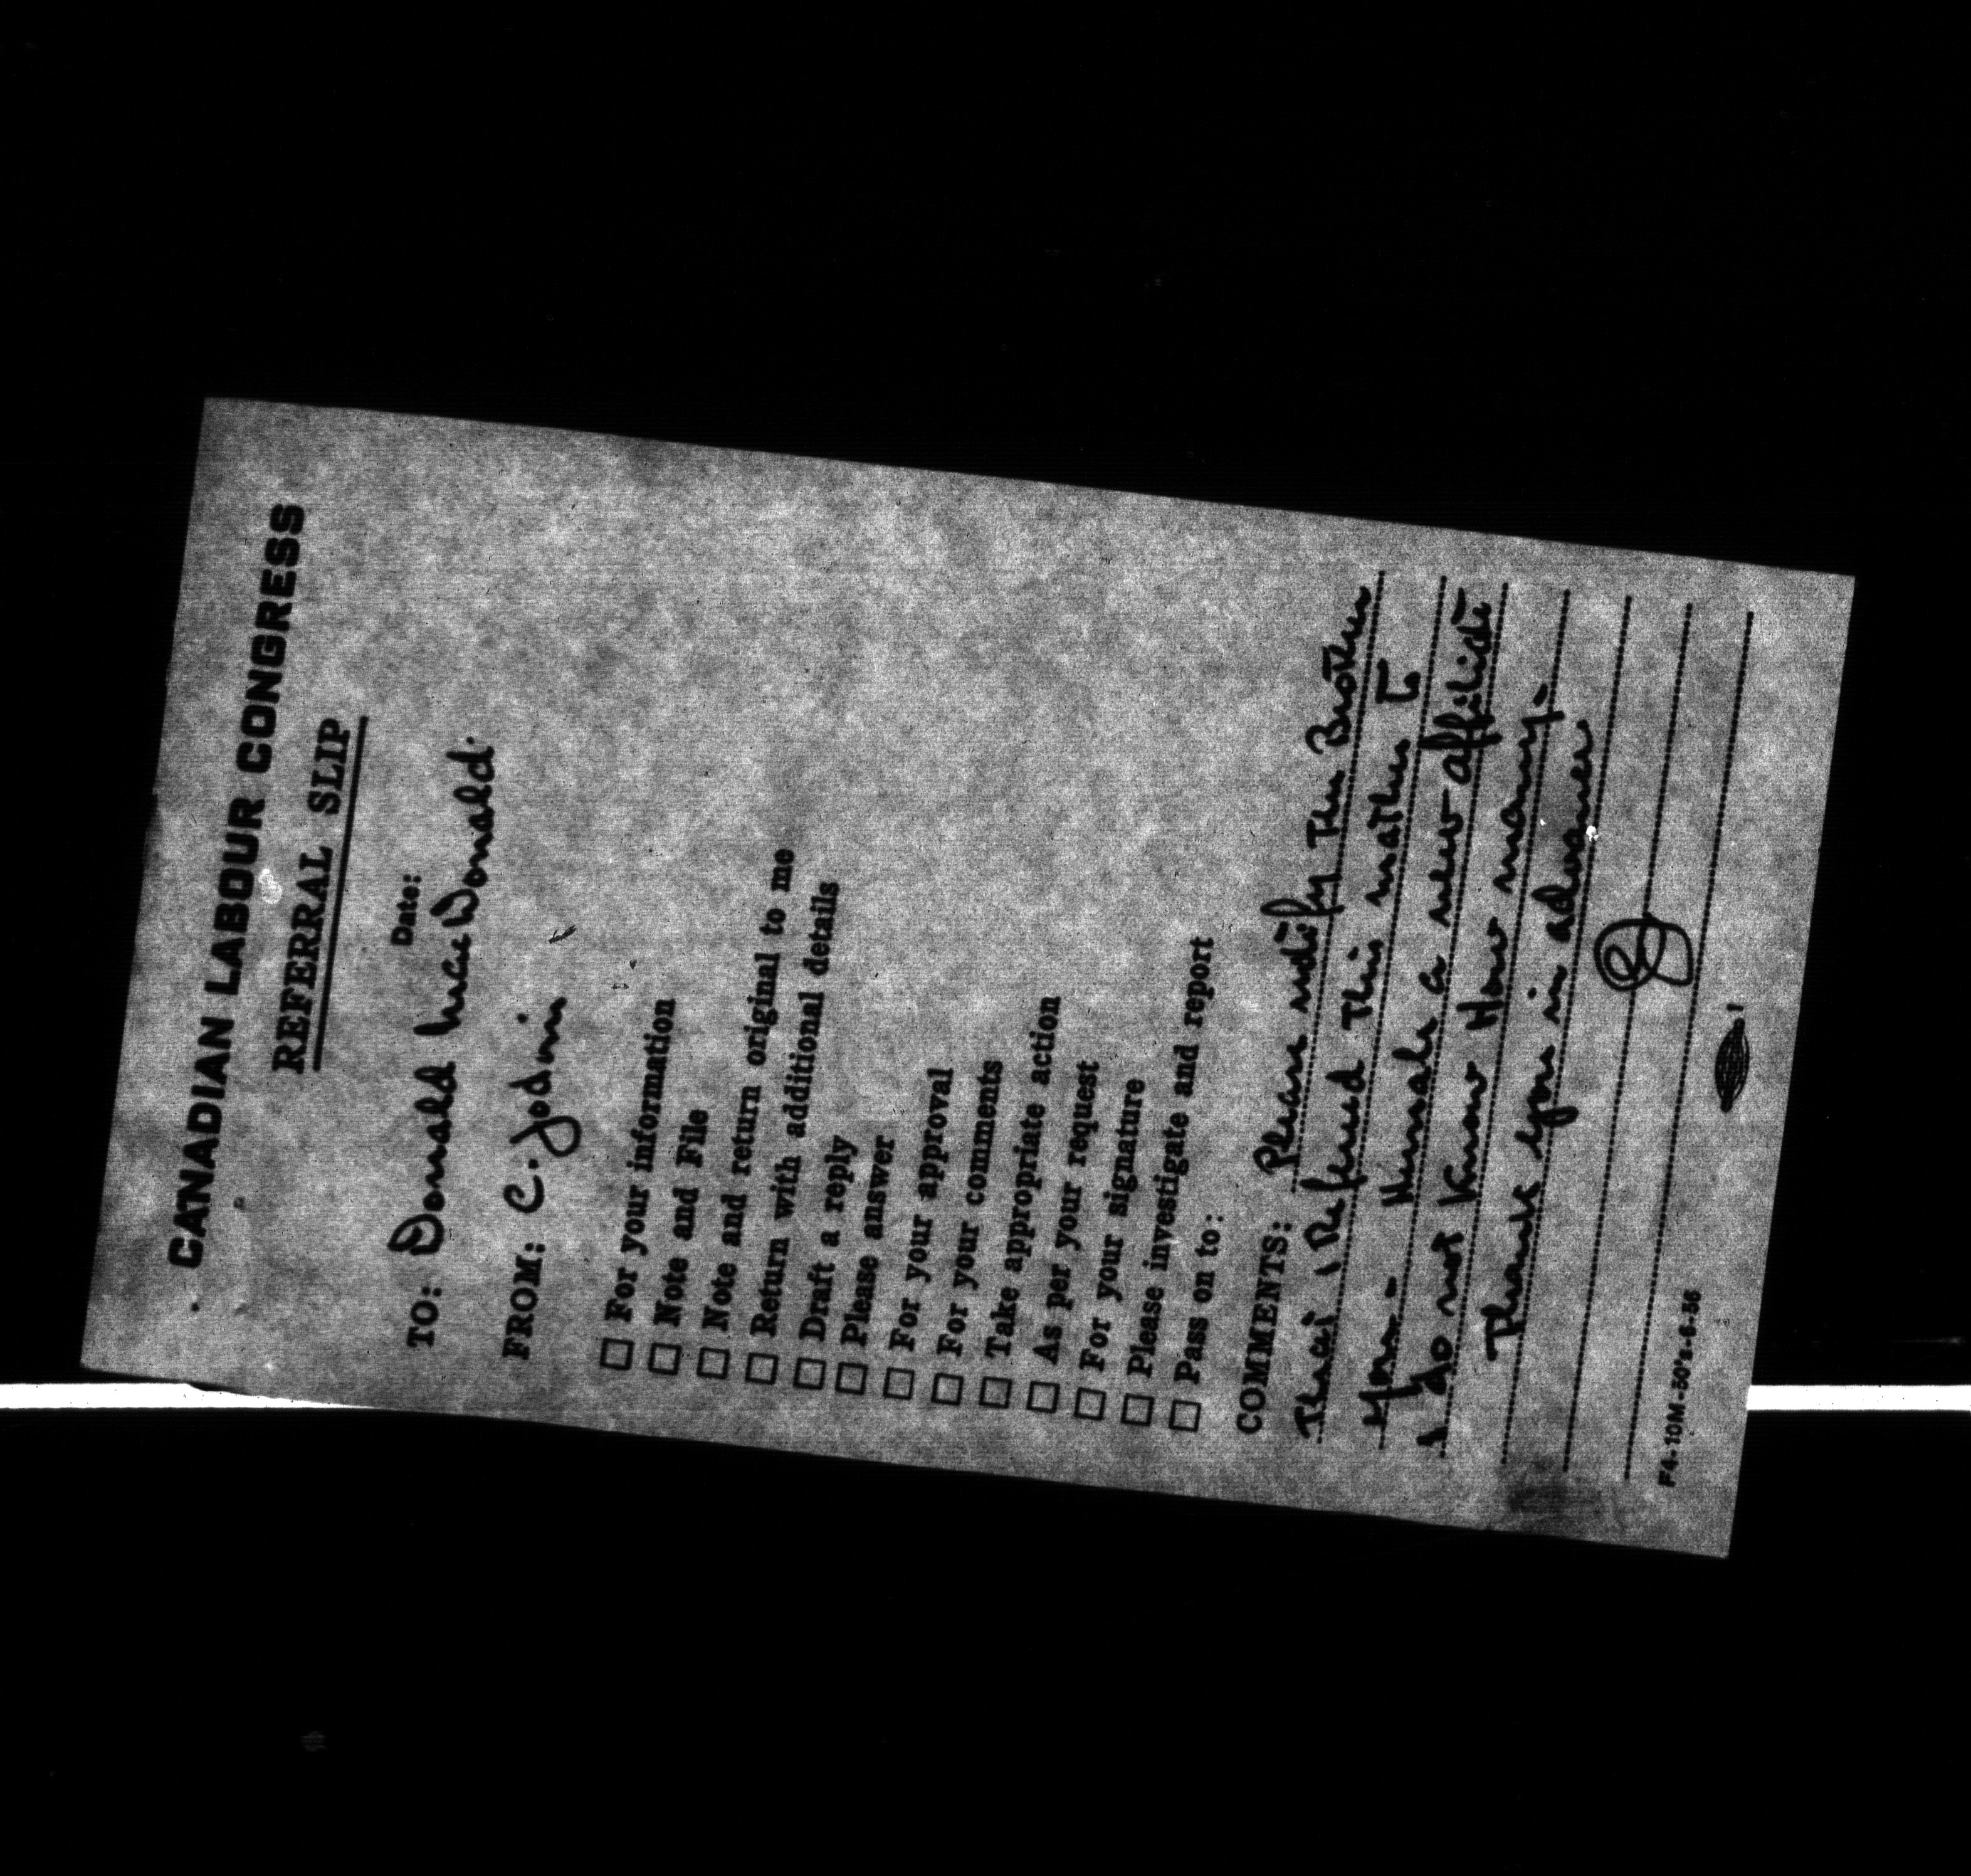 CANADIAN LABOUR CONGRESS
REFERRAL SLIP
Date:
TO: Donald MacDonald.
FROM: C. Jodoin
☐ For your information
☐ Note and File
☐ Note and return original to me
☐ Return with additional details
☐ Draft a reply
☐ Please answer
☐ For your approval
☐ For your comments
☐ Take appropriate action
☐ As per your request
☐ For your signature
☐ Please investigate and report
☐ Pass on to:
COMMENTS: Please notify The Brother
That I Refered This matter to
You - a new affiliate
I do not Know How many -
Thank you in advance
F4-10M-50's-6-56